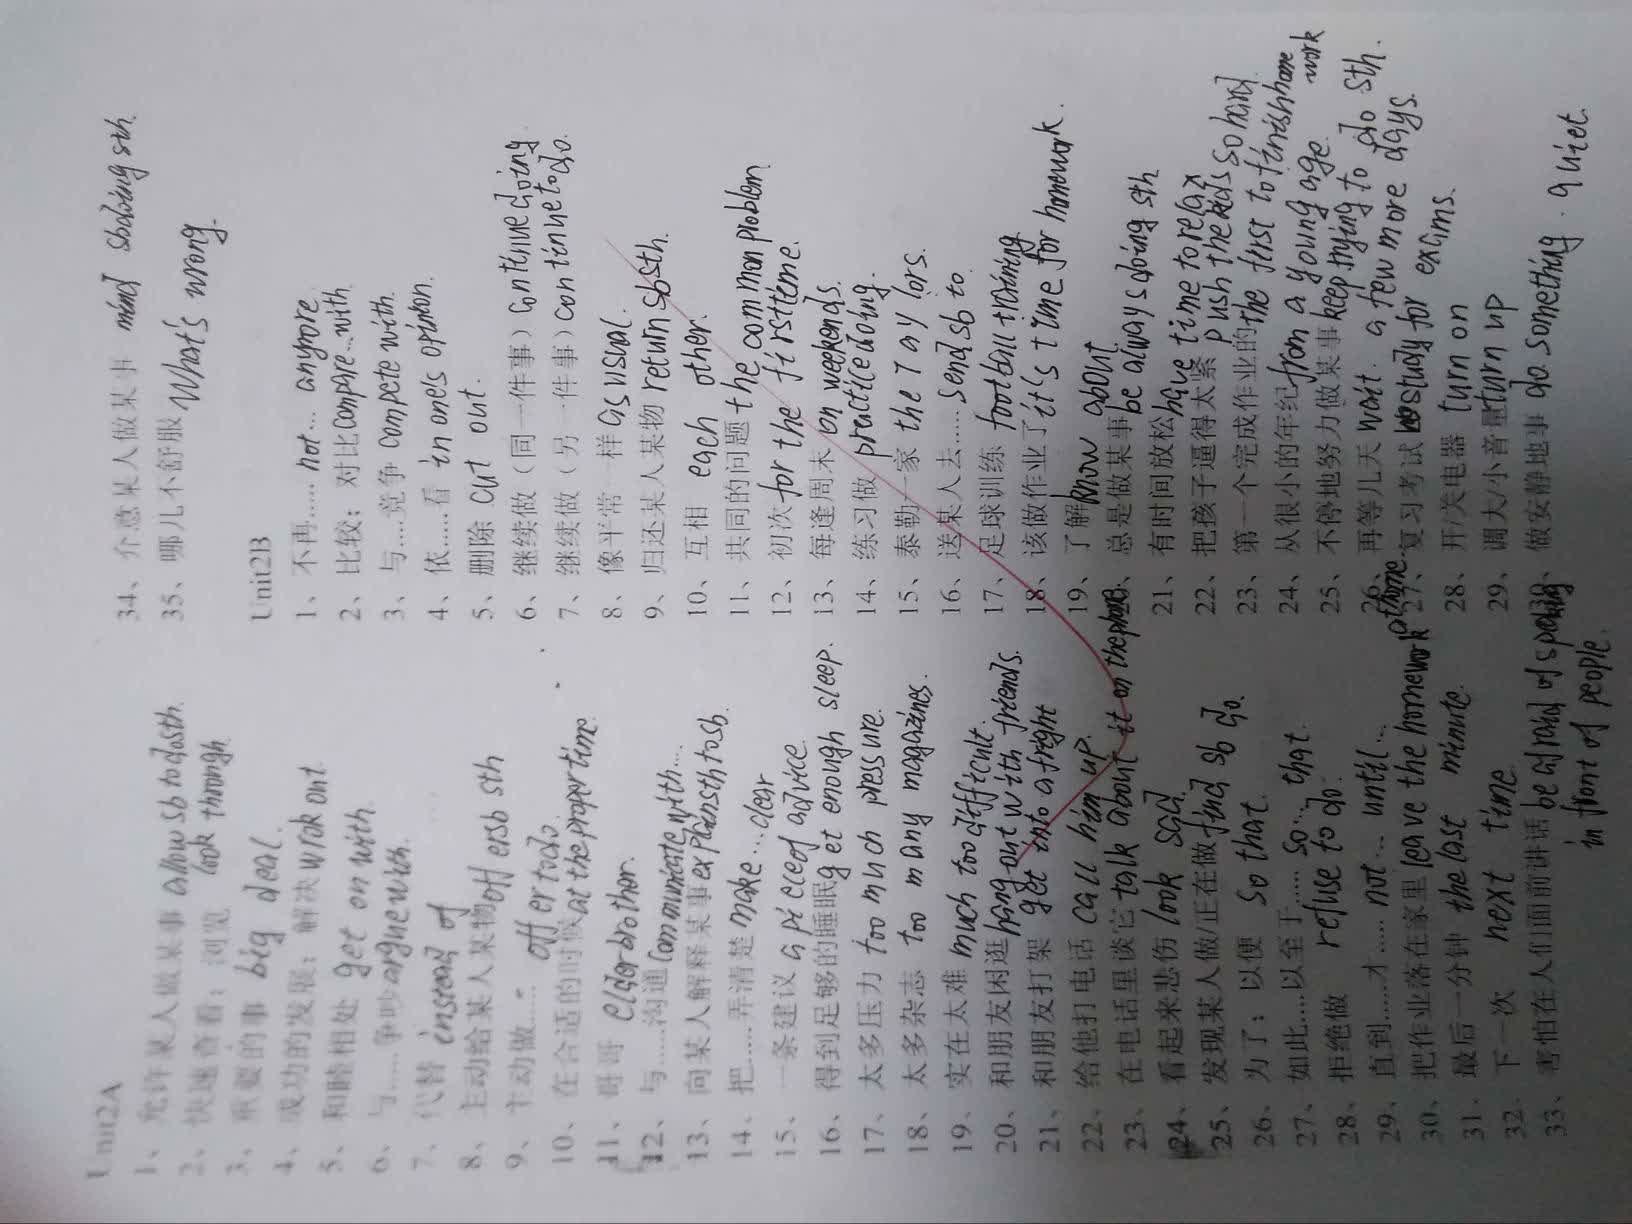 Unit2A
1、允许某人做某事 allow sb to do sth.
2、快速查看；浏览 look through
3、重要的事 big deal.
4、成功的发展；解决 wrok out.
5、和睦相处 get on with.
6、与……争吵 argue with.
7、代替 instead of
8、主动给某人某物 offer sb sth
9、主动做…… offer to do.
10、在合适的时候 at the proper time.
11、哥哥 elder brother.
12、与……沟通 communicate with...
13、向某人解释某事 explain sth to sb.
14、把……弄清楚 make...clear
15、一条建议 a piece of advice.
16、得到足够的睡眠 get enough sleep.
17、太多压力 too much pressure.
18、太多杂志 too many magazines.
19、实在太难 much too difficult.
20、和朋友闲逛 hang out with friends.
21、和朋友打架 get into a fright
22、给他打电话 call him up.
23、在电话里谈它 talk about it on the phone.
24、看起来悲伤 look sad.
25、发现某人做/正在做 find sb do.
26、为了；以便 so that.
27、如此……以至于…… so... that
28、拒绝做 refuse to do.
29、直到……才…… not... until...
30、把作业落在家里 leave the homework at home
31、最后一分钟 the last minute.
32、下一次 next time.
33、害怕在人们面前讲话 be afraid of speaking
in front of people.
34、介意某人做某事 mind sb doing sth.
35、哪儿不舒服 What's wrong.
Unit2B
1、不再…… not... anymore
2、比较；对比 compare...with
3、与……竞争 compete with.
4、依……看 in one's opinion.
5、删除 cut out.
6、继续做（同一件事）continue doing.
7、继续做（另一件事）continue to do.
8、像平常一样 as usual.
9、归还某人某物 return sb sth.
10、互相 each other.
11、共同的问题 the common problem.
12、初次 for the first time.
13、每逢周末 on weekends.
14、练习做 practice doing.
15、泰勒一家 the Taylors.
16、送某人去…… send sb to.
17、足球训练 football training
18、该做作业了 it's time for homework.
19、了解 know about
20、总是做某事 be always doing sth
21、有时间放松 have time to relax
22、把孩子逼得太紧 push the kids so hard
23、第一个完成作业的 the first to finish home work
24、从很小的年纪 from a young age.
25、不停地努力做某事 keep trying to do sth.
26、再等几天 wait a few more days.
27、复习考试 study for exams.
28、开/关电器 turn on
29、调大/小音量 turn up
30、做安静地事 do something quiet.